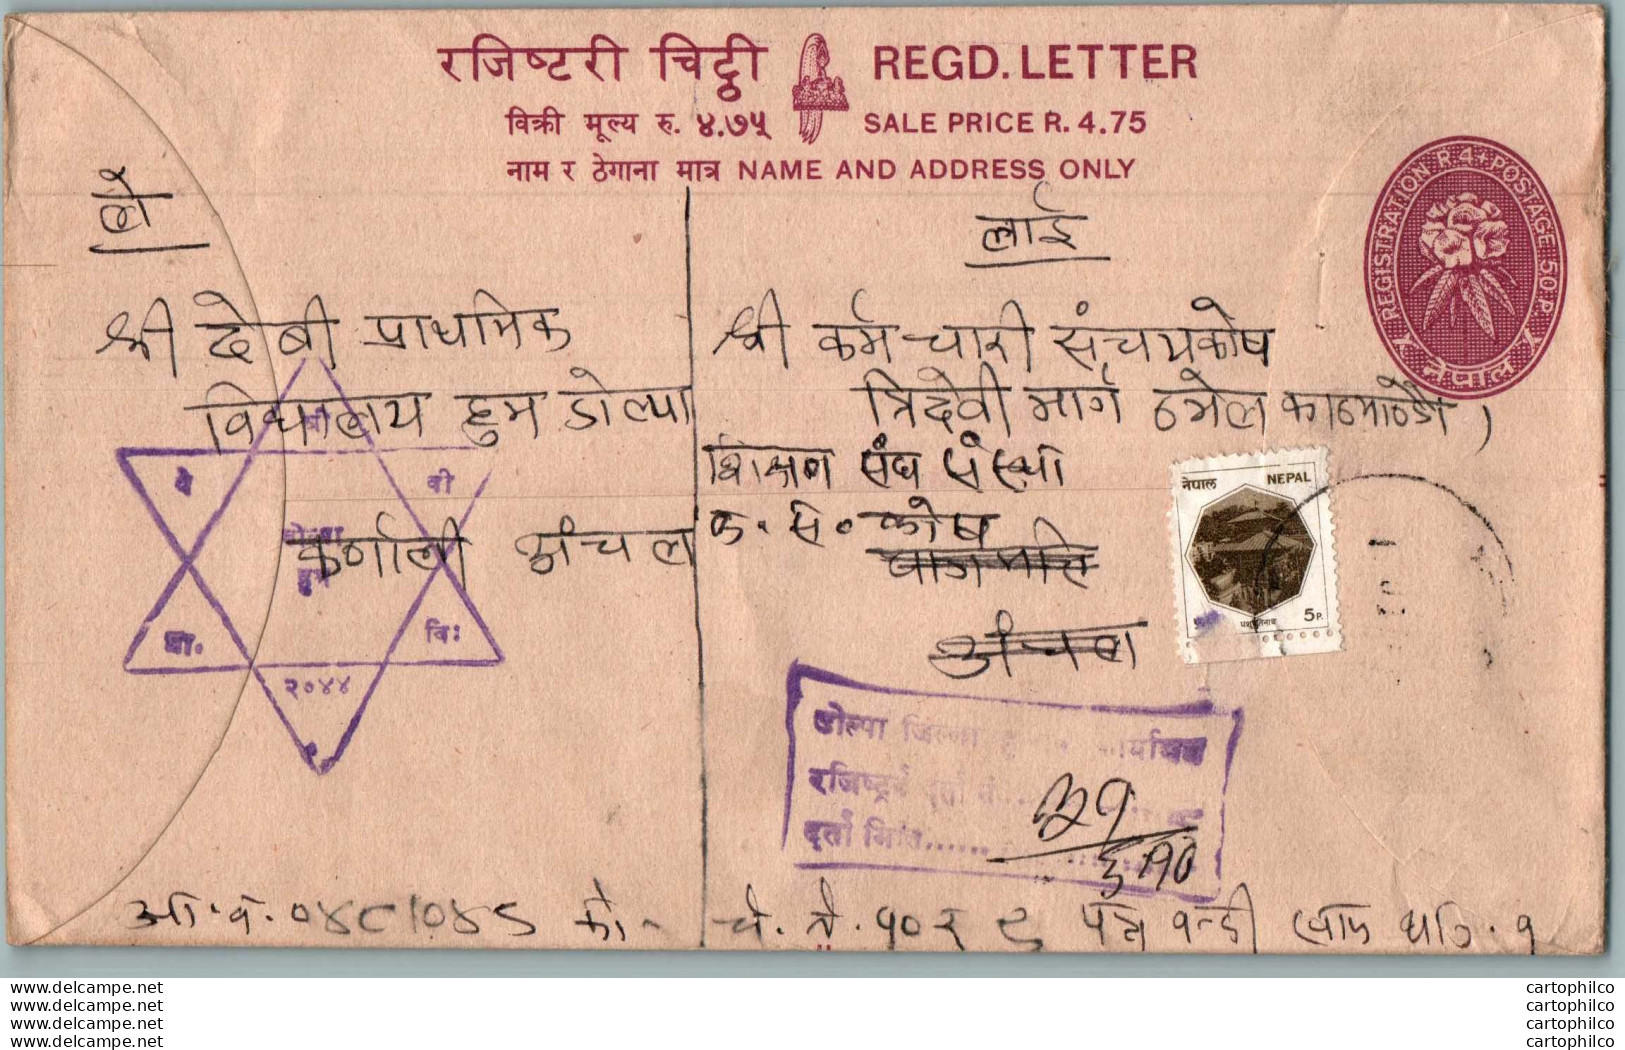 रजिष्टरी चिट्ठी REGD. LETTER
विक्री मूल्य रु. ४.७५ SALE PRICE R. 4.75
नाम र ठेगाना मात्र NAME AND ADDRESS ONLY
REGISTRATION R 4 + POSTAGE 50 P.
नेपाल
ले
श्री देबी प्राथमिक
विद्यालय हुम डोल्पा
कर्णाली अंचल
लाई
श्री कर्मचारी संचयकोष
त्रिदेवी मार्ग ठमेल काठमाण्डौ
शिक्षण संघ संस्था
क. सं. कोष
बागमति
अंचल
नेपाल NEPAL
पशुपतिनाथ 5 P.
श्री
दे बी
डोल्पा
हुम
प्रा. वि:
२०४४
डोल्पा जिल्ला कार्यालय
रजिष्ट्री दर्ता नं.
दर्ता मिति......
आ.व. ०४८/०४९
चे. नं. ५०२९
www.delcampe.net
www.delcampe.net
www.delcampe.net
www.delcampe.net
cartophilco
cartophilco
cartophilco
cartophilco